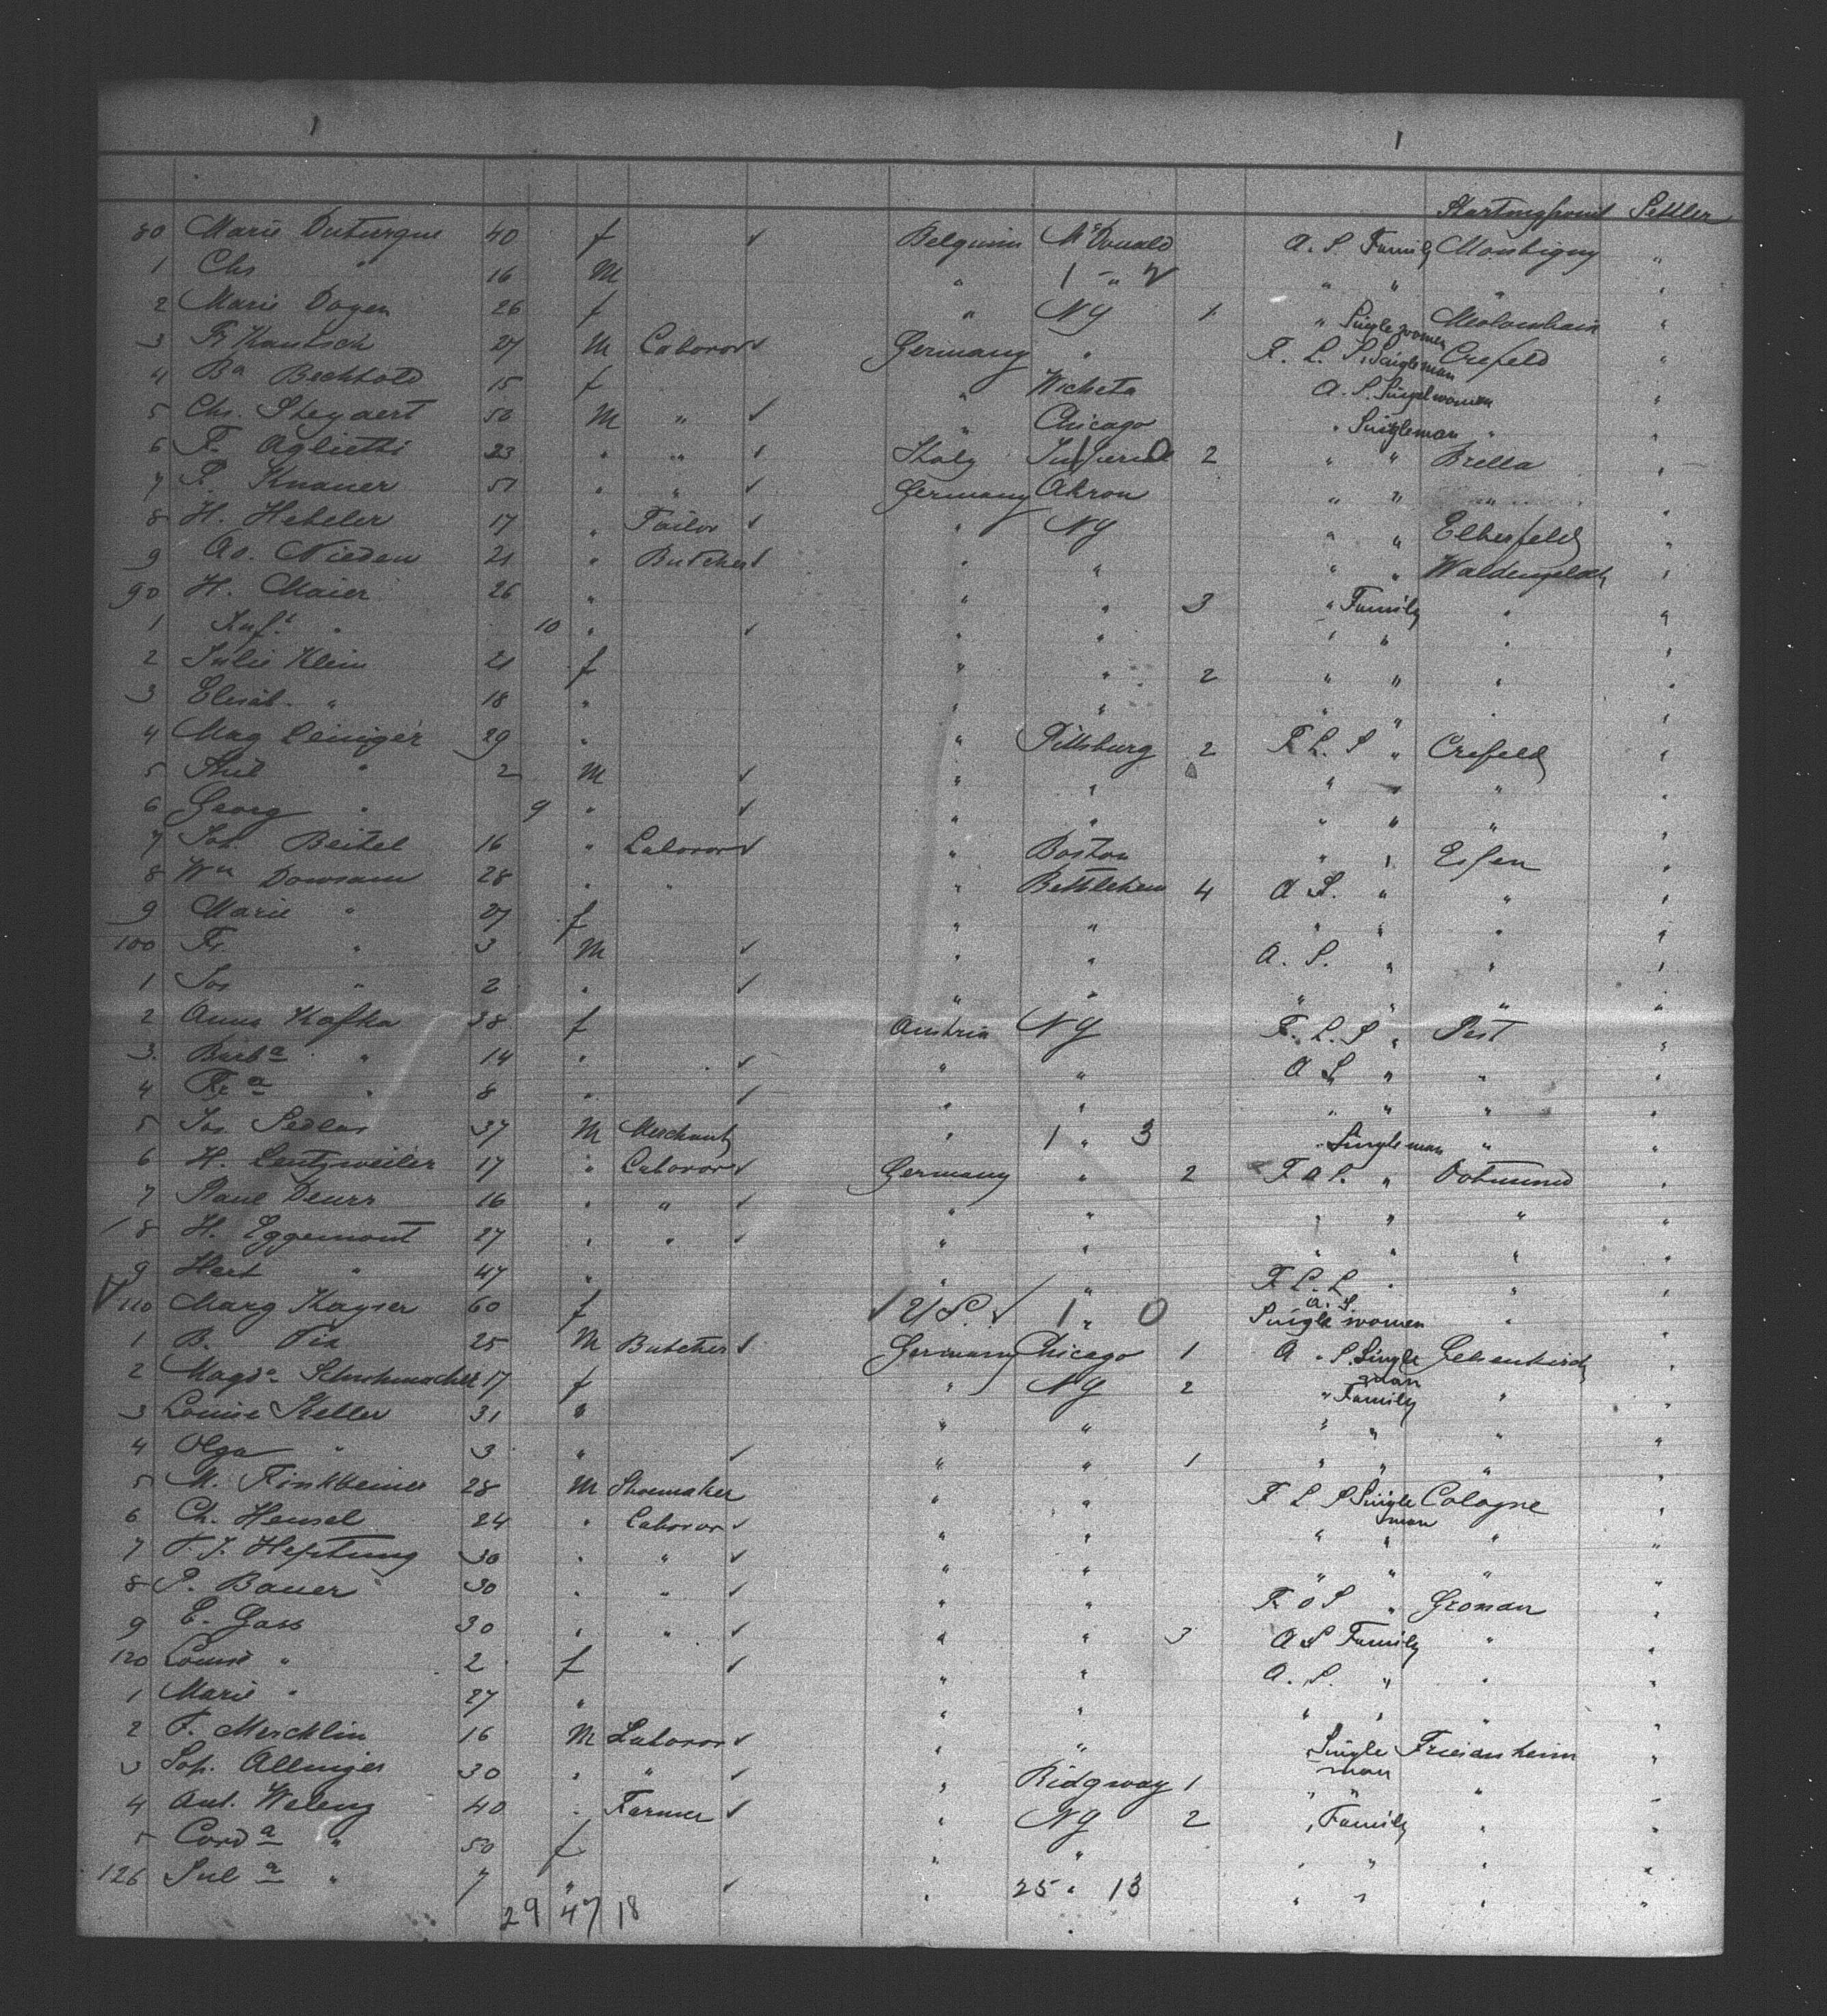 1 1
Startingpoint Settler
80 Marie Duturque 40 f ✓ Belguim McDonald A. S. Family Montigny "
1 Chs " 16 M " 1 - " 2 " " " "
2 Marie Dogen 26 f " NY 1 " Single women "
3 Fz Kautsch 27 M Laboror ✓ Germany " F. L. S. Single man Crefeld "
4 Ba Bechtold 15 f " Wicheta A. S. Single women "
5 Chs. Steyaert 50 M " ✓ " Chicago " Single man " "
6 F. Aglietti 23 " " ✓ Italy 2 " " Brella "
7 P. Knauer 51 " " ✓ Germany Akron " " " "
8 H. Hebeler 17 " Tailor ✓ " NY " " Elberfeld "
9 Ao. Nieden 21 " Butcher ✓ " " " "
90 H. Maier 26 " " " 3 " Family " "
1 Inft " 10 " ✓ " " " " " "
2 Julie Klein 21 f " " 2 " " " "
3 Elisab. " 18 " " " " " " "
4 Mag Leiniger 29 " " Pittsburg 2 F L. S " Crefeld "
5 " 2 M ✓ " " " " " "
6 Georg " 9 " ✓ " " " " " "
7 Joh. Beitel 16 " Laboror ✓ " Boston " " Essen "
8 Wm Dowsam 28 " " " Bethlehem 4 A S. " " "
9 Marie " 27 f " " " " " "
100 Fr. " 3 M ✓ " " A. S. " " "
1 Jos " 2 " ✓ " " " " " "
2 Anna Kafka 38 f Austria NY F. L. S " Pest "
3. Barba " 14 " ✓ " " A S " " "
4 Fra " 8 " ✓ " " " " " "
5 Jos. Sedlar 37 M Merchant " 1 " 3 " Single man " "
6 H. Lentzweiler 17 " Laboror ✓ Germany " 2 F A S. " Dotmund "
7 Paul Deurr 16 " " ✓ " " " " " "
8 H. Eggemont 27 " " ✓ " " " " " "
9 Hert " 47 " " " F L. L " " "
✓ 110 Marg Kayser 60 f ✓ U S. ✓ 1 " 0 A. S. Single women " "
1 B. Fix 25 M Butcher ✓ Germany Chicago 1 A. S. Single man "
2 Magda Schuhmacher 17 f " NY 2 " Family " "
3 Louise Keller 31 " " " " " " "
4 Olga " 3 " ✓ " " 1 " " " "
5 M. Finkbeiner 28 M Shoemaker " " F L S Single man Cologne "
6 Ch. Hensel 24 " Laboror ✓ " " " " " "
7 F. J. Heftung 30 " " ✓ " " " " " "
8 P. Bauer 30 " " ✓ " " F. O S " Gronau "
9 E. Gass 30 " " ✓ " " 3 A S Family " "
120 Louise " 2 f ✓ " " A. S. " " "
1 Marie " 27 " " " " " " "
2 F. Mercklin 16 M Laboror ✓ " " Single man Friesenheim "
3 Jos. Allinger 30 " " ✓ " Ridgway 1 " " " "
4 Ant. Weleny 40 " Farmer ✓ " NY 2 " Family " "
5 Corda " 50 f " " " " " "
126 Jula " 7 " ✓ " 25 " 13 " " " "
29 47 18